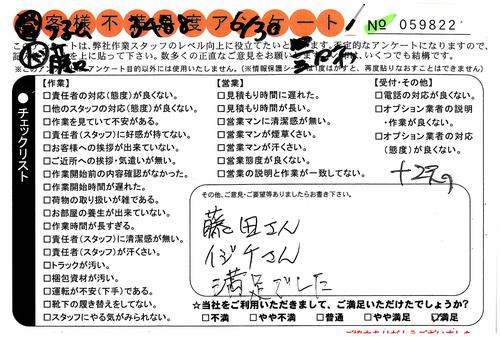 お客様不満足度アンケート
№ 059822
6/30
このアンケートは、弊社作業スタッフのレベル向上に役立てたいと
います。否定的なアンケートになりますので、
記
を上に貼って下さい。数多くの正直なご意見をお願い
いくつでも結構です。
※このアンケート目的以外には使用いたしません。(※情報保護シールは1度はがすと、再度貼りなおすことはできません)
チェックリスト
【作業】
□責任者の対応(態度)が良くない。
□他のスタッフの対応(態度)が良くない。
□作業を見ていて不安がある。
□責任者(スタッフ)に好感が持てない。
□お客様への挨拶が出来ていない。
□ご近所への挨拶・気遣いが無い。
□作業開始前の内容確認がなかった。
□作業開始時間が遅れた。
□荷物の取り扱いが雑である。
□お部屋の養生が出来ていない。
□作業時間が長すぎる。
□責任者(スタッフ)に清潔感が無い。
□責任者(スタッフ)が汗くさい。
□トラックが汚い。
□梱包資材が汚い。
□運転が不安(下手)である。
□靴下の履き替えをしてない。
□スタッフにやる気がみられない。
【営業】
□見積もり時間に遅れた。
□見積もり時間が長い。
□営業マンに清潔感が無い。
□営業マンが煙草くさい。
□営業マンが汗くさい。
□営業態度が良くない。
□営業の説明と作業が一致してない。
【受付・その他】
□電話の対応が良くない。
□オプション業者の説明
・作業が良くない。
□オプション業者の対応
(態度)が良くない。
その他、ご意見・ご要望等ありましたらお書き下さい。
藤田さん
イジケさん
満足でした
☆当社をご利用いただきまして、ご満足いただけたでしょうか?
□不満 □やや不満 □普通 □やや満足 ☑満足